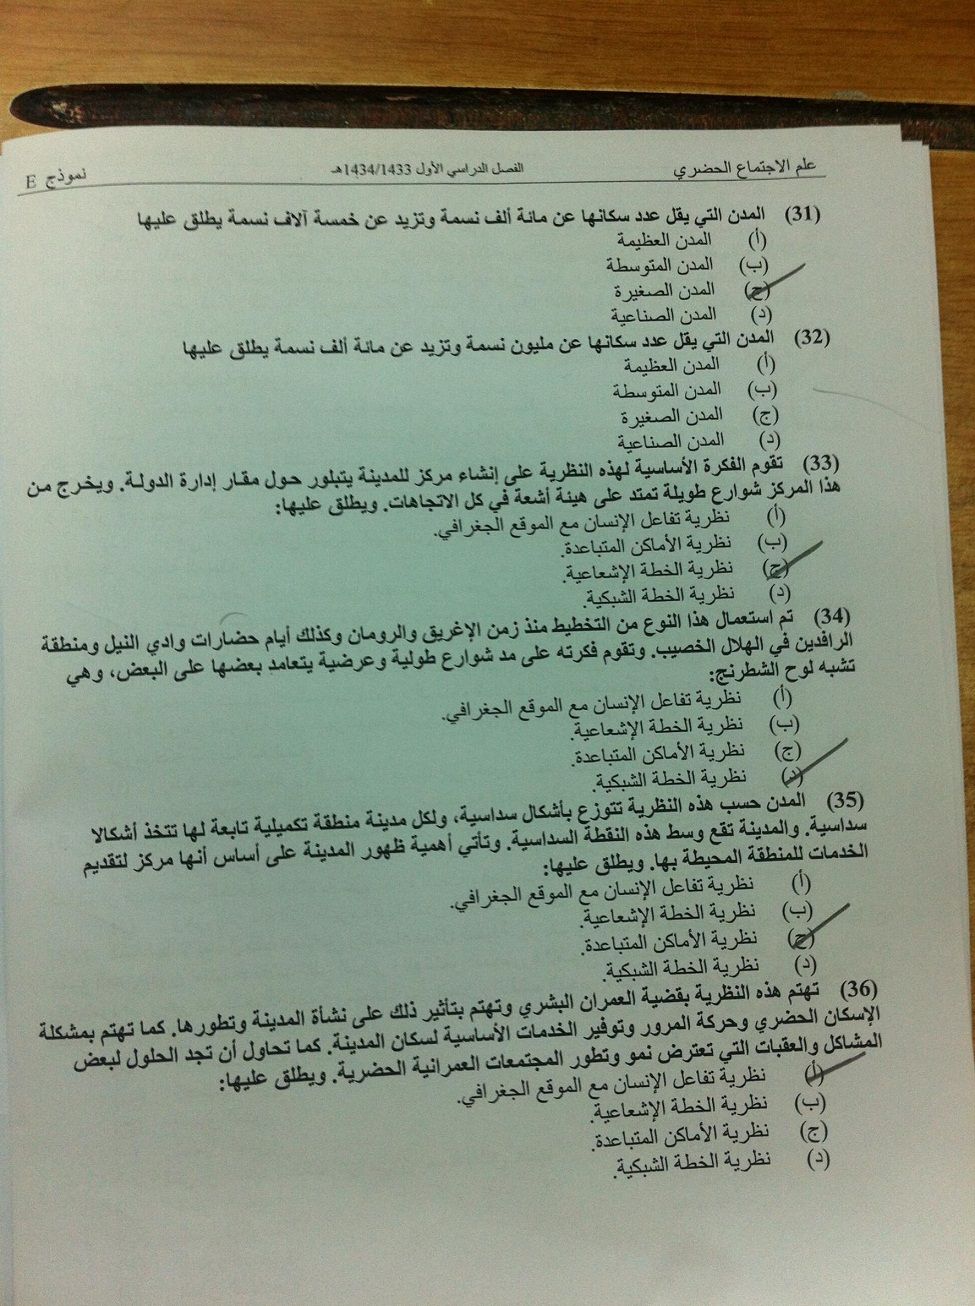 علم الاجتماع الحضري
الفصل الدراسي الأول 1434/1433هـ
نموذج E
(31) المدن التي يقل عدد سكانها عن مائة ألف نسمة وتزيد عن خمسة آلاف نسمة يطلق عليها
(أ) المدن العظيمة
(ب) المدن المتوسطة
(ج) المدن الصغيرة
(د) المدن الصناعية
(32) المدن التي يقل عدد سكانها عن مليون نسمة وتزيد عن مائة ألف نسمة يطلق عليها
(أ) المدن العظيمة
(ب) المدن المتوسطة
(ج) المدن الصغيرة
(د) المدن الصناعية
(33) تقوم الفكرة الأساسية لهذه النظرية على إنشاء مركز للمدينة يتبلور حول مقار إدارة الدولة. ويخرج من
هذا المركز شوارع طويلة تمتد على هيئة أشعة في كل الاتجاهات. ويطلق عليها:
(أ) نظرية تفاعل الإنسان مع الموقع الجغرافي.
(ب) نظرية الأماكن المتباعدة.
(ج) نظرية الخطة الإشعاعية.
(د) نظرية الخطة الشبكية.
(34) تم استعمال هذا النوع من التخطيط منذ زمن الإغريق والرومان وكذلك أيام حضارات وادي النيل ومنطقة
الرافدين في الهلال الخصيب. وتقوم فكرته على مد شوارع طولية وعرضية يتعامد بعضها على البعض، وهي
تشبه لوح الشطرنج:
(أ) نظرية تفاعل الإنسان مع الموقع الجغرافي.
(ب) نظرية الخطة الإشعاعية.
(ج) نظرية الأماكن المتباعدة.
(د) نظرية الخطة الشبكية.
(35) المدن حسب هذه النظرية تتوزع بأشكال سداسية، ولكل مدينة منطقة تكميلية تابعة لها تتخذ أشكالا
سداسية. والمدينة تقع وسط هذه النقطة السداسية. وتأتي أهمية ظهور المدينة على أساس أنها مركز لتقديم
الخدمات للمنطقة المحيطة بها. ويطلق عليها:
(أ) نظرية تفاعل الإنسان مع الموقع الجغرافي.
(ب) نظرية الخطة الإشعاعية.
(ج) نظرية الأماكن المتباعدة.
(د) نظرية الخطة الشبكية.
(36) تهتم هذه النظرية بقضية العمران البشري وتهتم بتأثير ذلك على نشأة المدينة وتطورها. كما تهتم بمشكلة
الإسكان الحضري وحركة المرور وتوفير الخدمات الأساسية لسكان المدينة. كما تحاول أن تجد الحلول لبعض
المشاكل والعقبات التي تعترض نمو وتطور المجتمعات العمرانية الحضرية. ويطلق عليها:
(أ) نظرية تفاعل الإنسان مع الموقع الجغرافي.
(ب) نظرية الخطة الإشعاعية.
(ج) نظرية الأماكن المتباعدة.
(د) نظرية الخطة الشبكية.